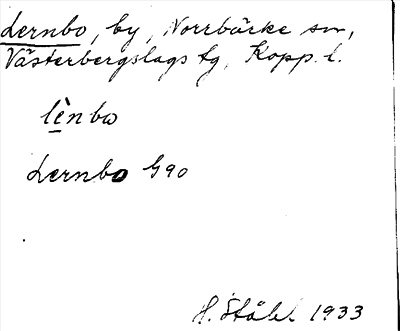 Lernbo, by, Norrbärke sn,
Västerbergslags tg, Kopp. l.
lènbω
Lernbo G90
H. Ståhl 1933